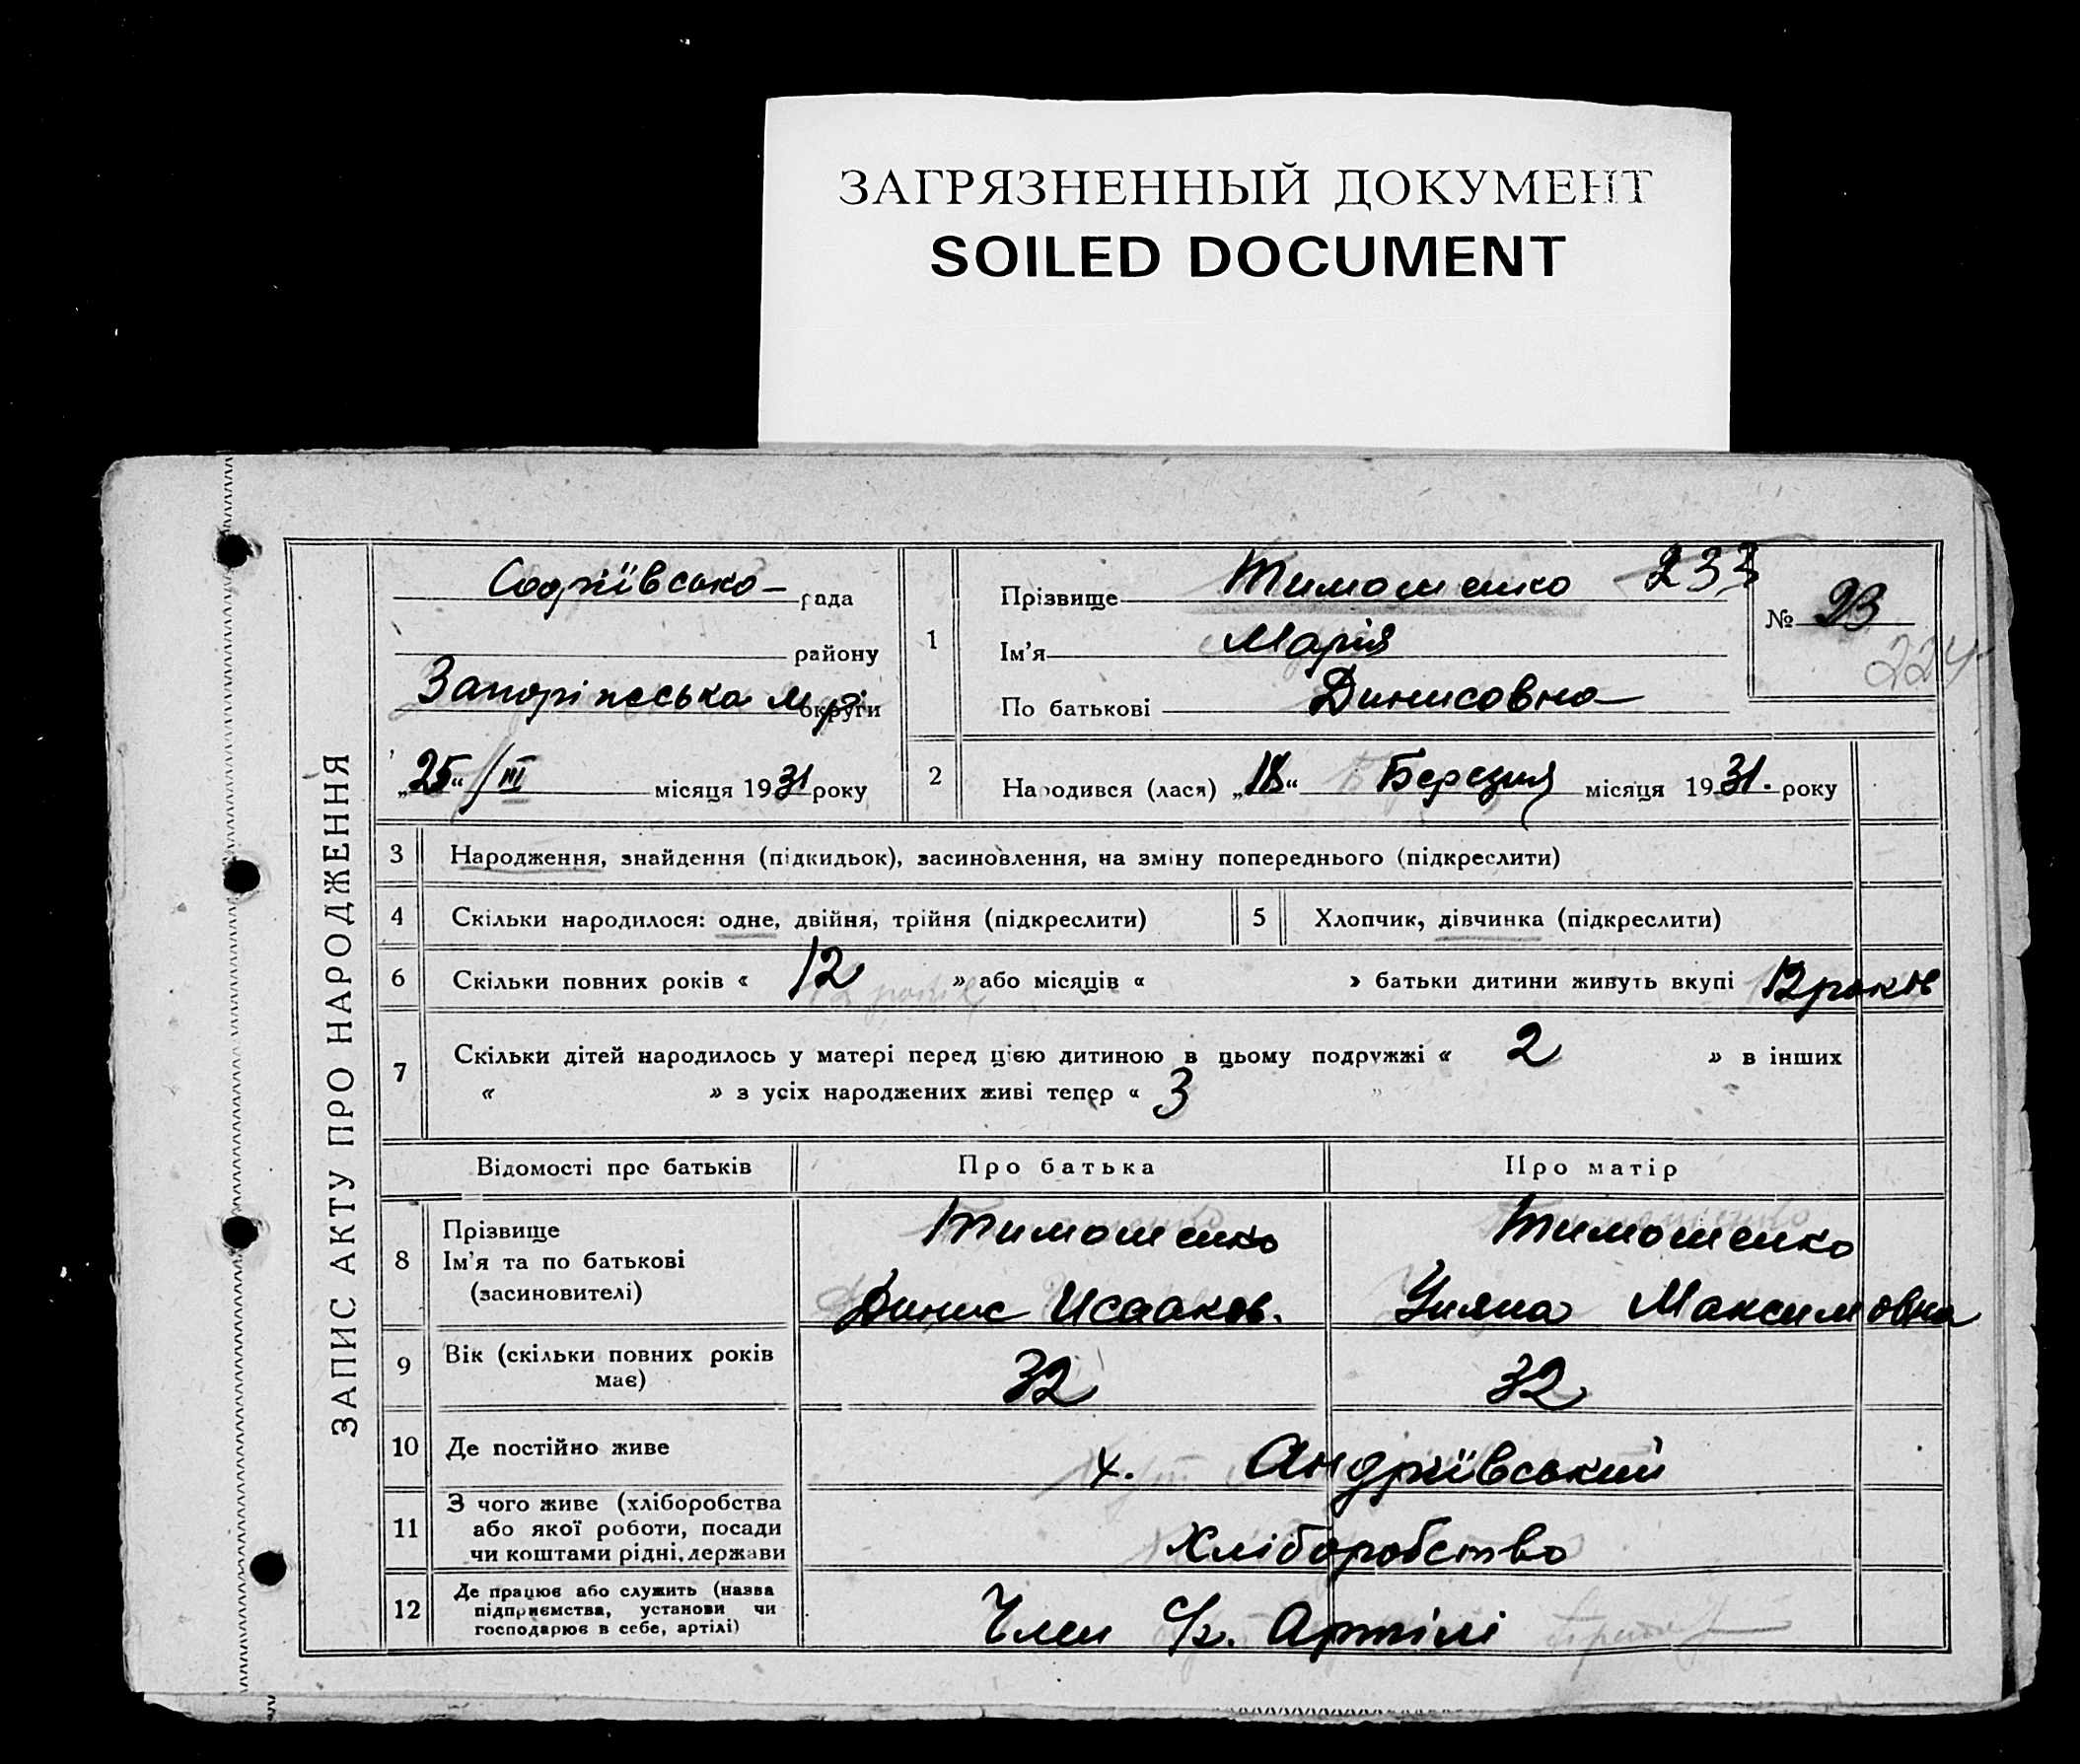 ЗАГРЯЗНЕННЫЙ ДОКУМЕНТ
SOILED DOCUMENT
ЗАПИС АКТУ ПРО НАРОДЖЕННЯ
рада
району
Запоріжська м р. округи
„25“ /III місяця 1931 року
1
Прізвище Тимошенко 233
Ім'я Марія
По батькові Динисовна
№ 23
224
2
Народився (лася) „18“ Березня місяця 1931. року
3 Народження, знайдення (підкидьок), засиновлення, на зміну попереднього (підкреслити)
4 Скільки народилося: одне, двійня, трійня (підкреслити) 5 Хлопчик, дівчинка (підкреслити)
6 Скільки повних років « 12 » або місяців « » батьки дитини живуть вкупі 12 років
7 Скільки дітей народилось у матері перед цією дитиною в цьому подружжі « 2 » в інших
« » з усіх народжених живі тепер « 3 "
Відомості про батьків Про батька Про матір
8 Прізвище
Ім'я та по батькові
(засиновителі)
Тимошенко
Динис Исааков.
Тимошенко
Уляна Максимовна
9 Вік (скільки повних років
має)
32 32
10 Де постійно живе х. Андріївський
11 З чого живе (хліборобства
або якої роботи, посади
чи коштами рідні, держави
Хліборобство
12 Де працює або служить (назва
підприємства, установи чи
господарює в себе, артілі)
Член с/г. Артілі